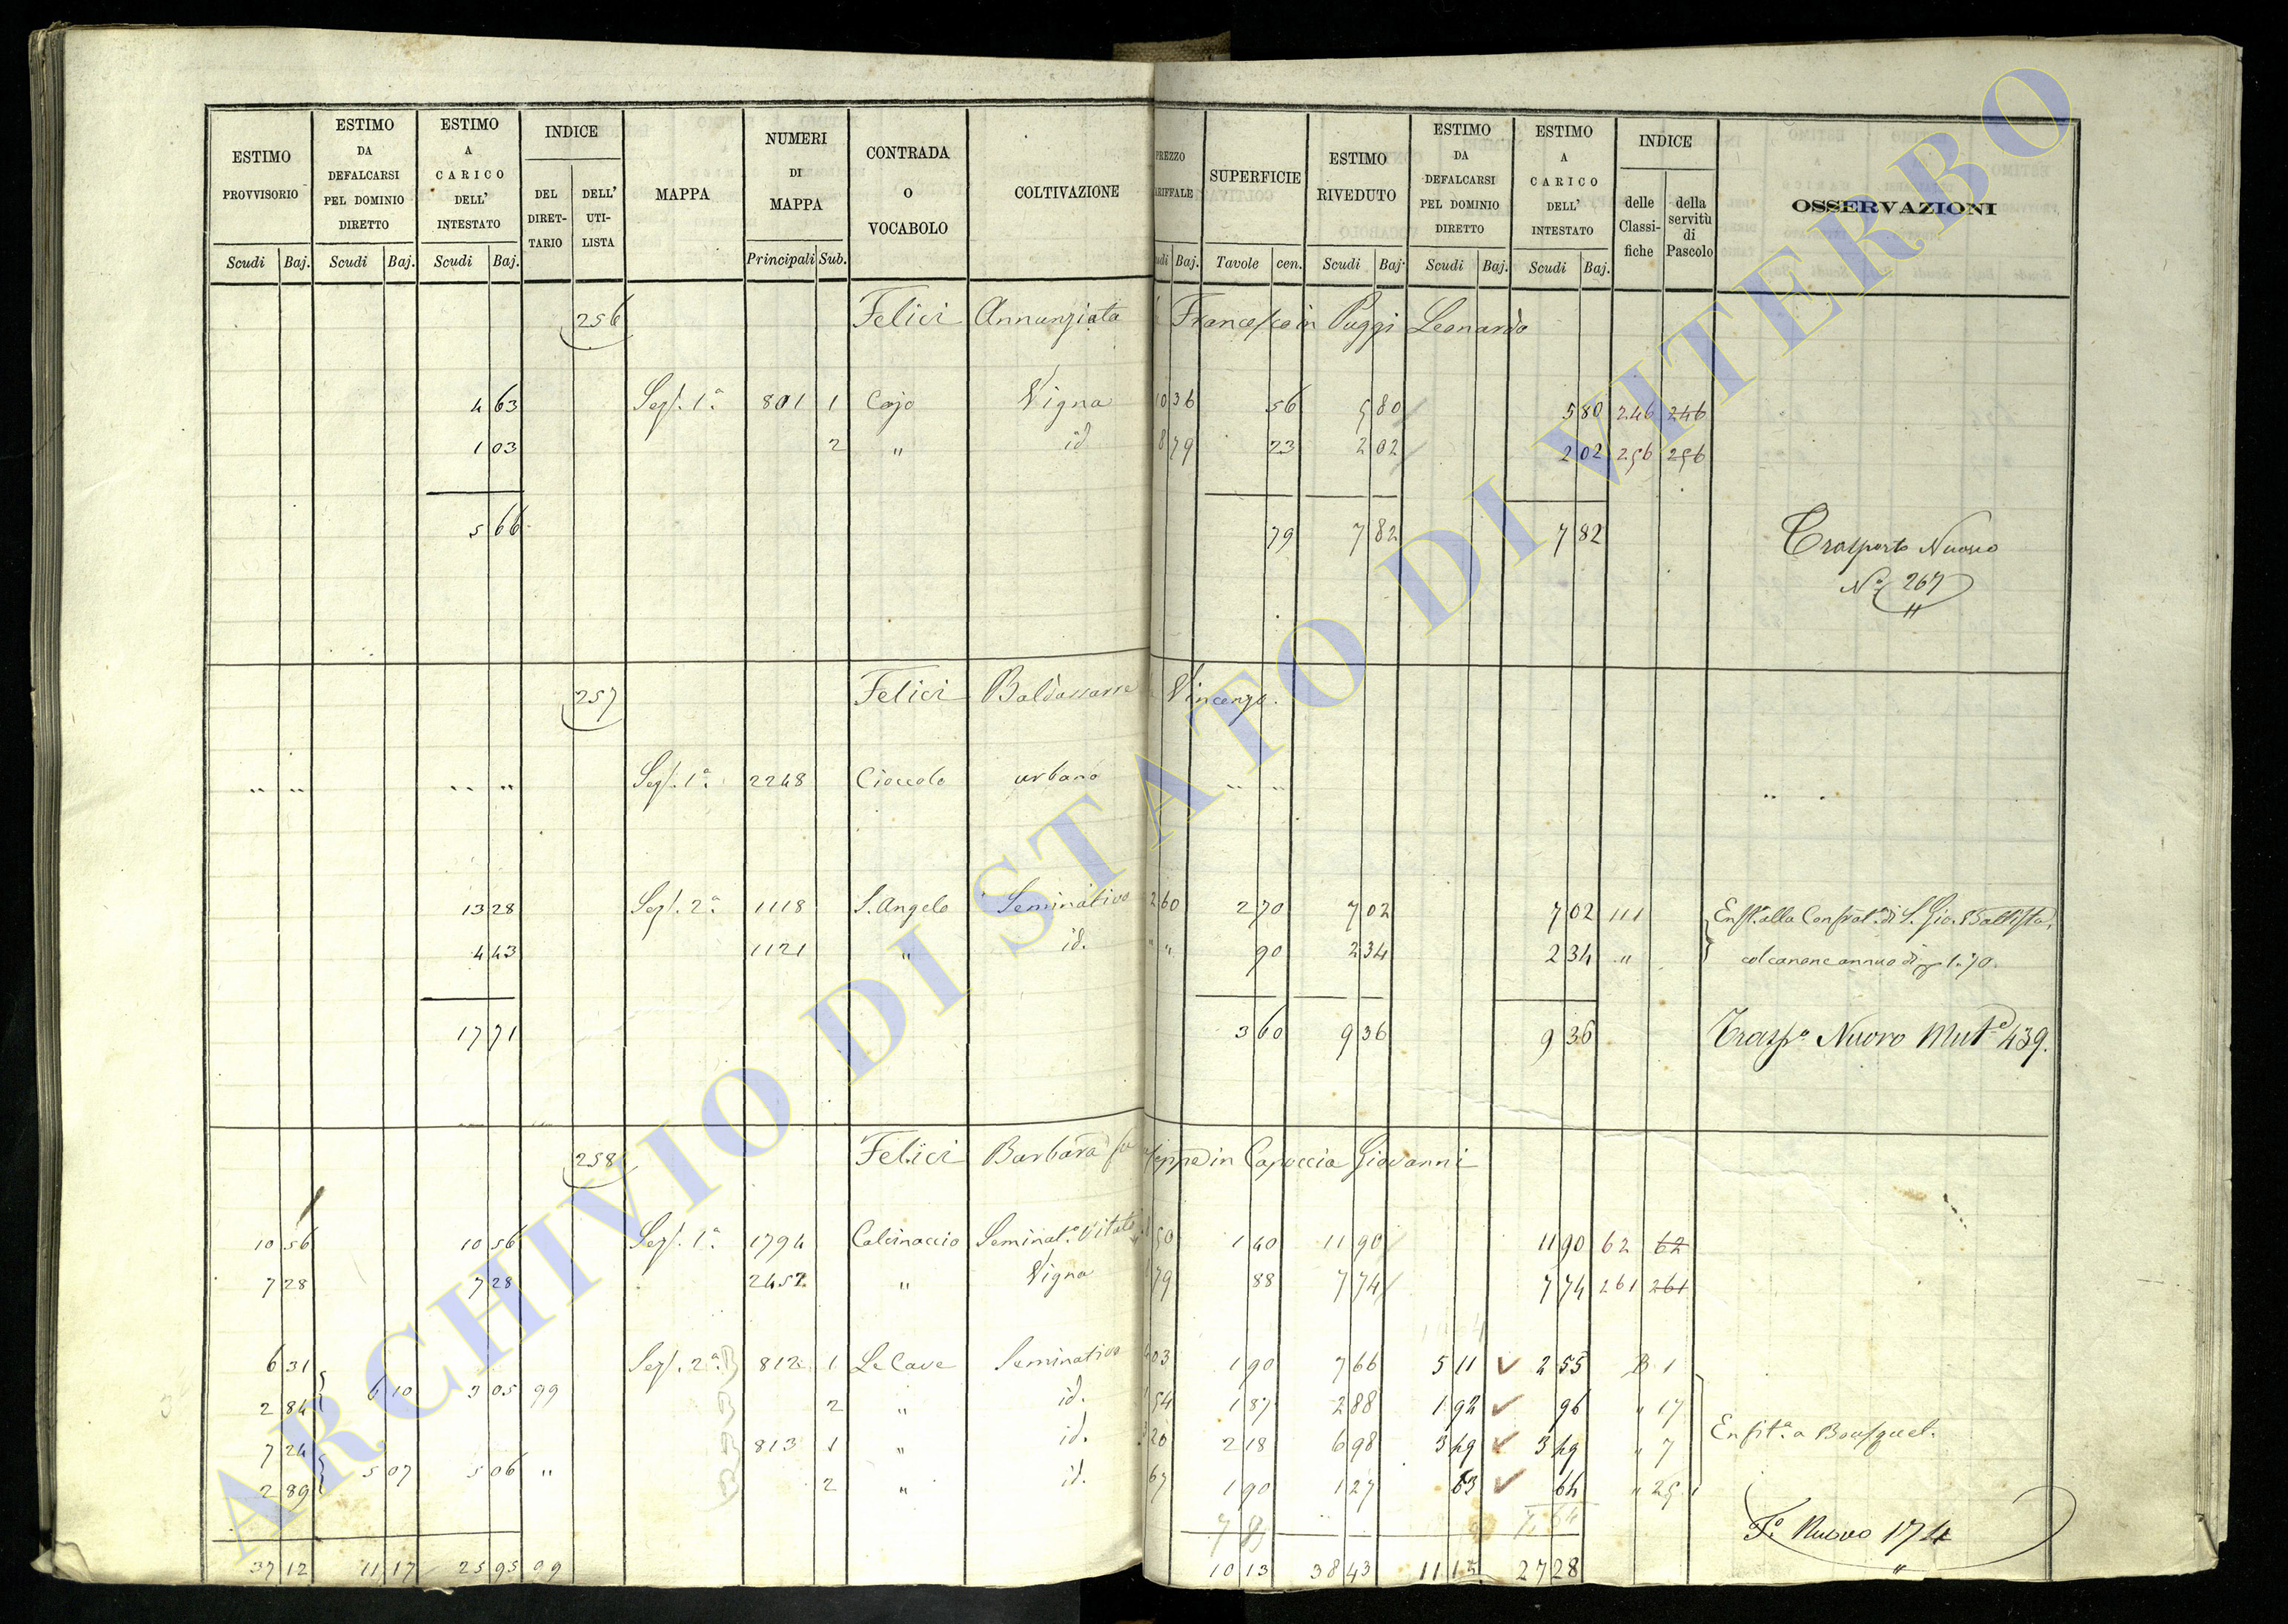 ESTIMO PROVVISORIO Scudi Baj.
ESTIMO DA DEFALCARSI PEL DOMINIO DIRETTO Scudi Baj.
ESTIMO A CARICO DELL' INTESTATO Scudi Baj.
INDICE DEL DIRET-TARIO DELL' UTI-LISTA
MAPPA
NUMERI DI MAPPA Principali Sub.
CONTRADA O VOCABOLO
COLTIVAZIONE
PREZZO ARIFFALE udi Baj.
SUPERFICIE Tavole cen.
ESTIMO RIVEDUTO Scudi Baj.
ESTIMO DA DEFALCARSI PEL DOMINIO DIRETTO Scudi Baj.
ESTIMO A CARICO DELL' INTESTATO Scudi Baj.
INDICE delle Classi-fiche della servitù di Pascolo
OSSERVAZIONI
256 Felici Annunziata Francesco in Puggi Leonardo
4 63 Sez. 1ª 801 1 Cajo Vigna 10 36 56 5 80 5 80 246 246
1 03 2 " id 8 79 23 2 02 2 02 256 256
5 66 79 7 82 7 82
Trasporto Nuovo
Nº 267
"
257 Felici Baldassarre Vincenzo.
" " " " Sez. 1ª 2248 Cioccolo urbano " " " "
13 28 Sez. 2ª 1118 S. Angelo Seminativo 2 60 2 70 7 02 7 02 111 Enft. alla Confrat. di S. Gio. Battista,
4 43 1121 " id. " " 90 2 34 2 34 " col canone annuo di 1.70.
17 71 3 60 9 36 9 36 Traspº Nuovo Mutº 439.
258 Felici Barbara seppe in Capoccia Giovanni
10 56 10 56 Sez. 1ª 1794 Calcinaccio Seminatº Vitato 50 1 40 11 90 11 90 62 62
7 28 7 28 2452 " Vigna 79 88 7 74 7 74 261 261
6 31 Sez. 2ª 812 1 Le Cave Seminativo 03 1 90 7 66 5 11 2 55 B 1
2 84 6 10 3 05 99 2 " id. 54 1 87 2 88 1 92 96 " 17
7 24 813 1 " id. 3 20 2 18 6 98 3 49 3 49 " 7 Enfitª a Bousquet.
2 89 5 07 5 06 " 2 " id. 67 1 90 1 27 63 64 " 25
Fº Nuovo 174
"
37 12 11 17 25 95 99 10 13 38 43 11 15 27 28
ARCHIVIO DI STATO DI VITERBO